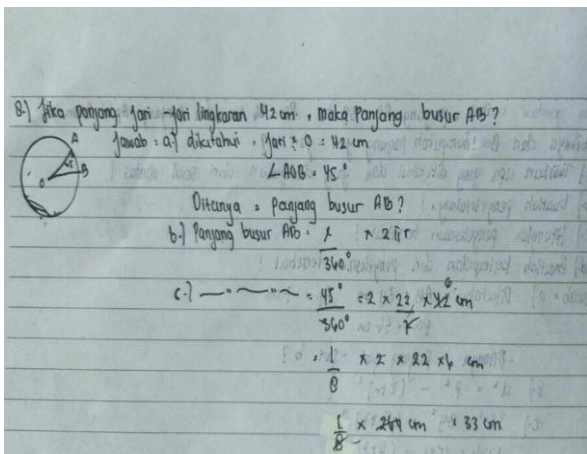 8.) Jika panjang jari-jari lingkaran 42 cm, maka panjang busur AB?
Jawab = a.) diketahui = jari² 0 = 42 cm
A
45
B
O
∠AOB = 45°
Ditanya = panjang busur AB?
b.) Panjang busur AB = x/360° × 2πr
c.) —"—"— = 45°/360° = 2 × 22/7 × 42 6 cm
= 1/8 × 2 × 22 × 6 cm
1/8 × 264 cm = 33 cm